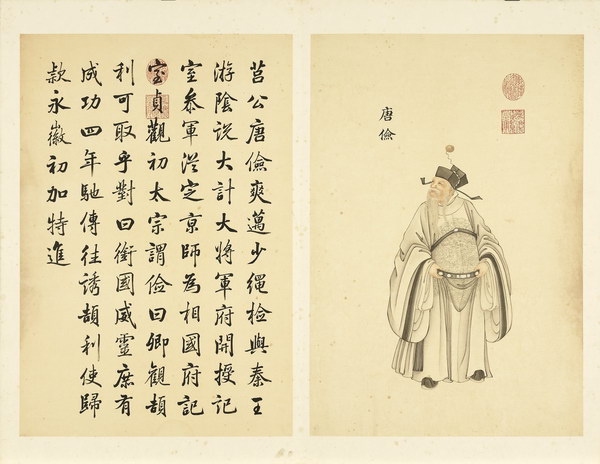 唐儉
莒公唐儉爽邁少繩檢與秦王
游陰說大計大將軍府開授記
室叅軍從定京師為相國府記
室貞觀初太宗謂儉曰卿觀頡
利可取乎對曰銜國威靈庶有
成功四年馳傳往誘頡利使歸
款永徽初加特進